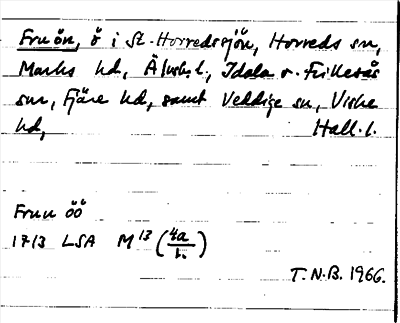 Fruön, ö i St. Horredssjön, Horreds sn,
Marks hd, Älvsb. l., Idala o. Frillesås
snr, Fjäre hd, samt Veddige sn, Viske
hd, Hall. l.
Fruu öö
1713 LSA M 13 (4a/1.)
T.N.B. 1966.